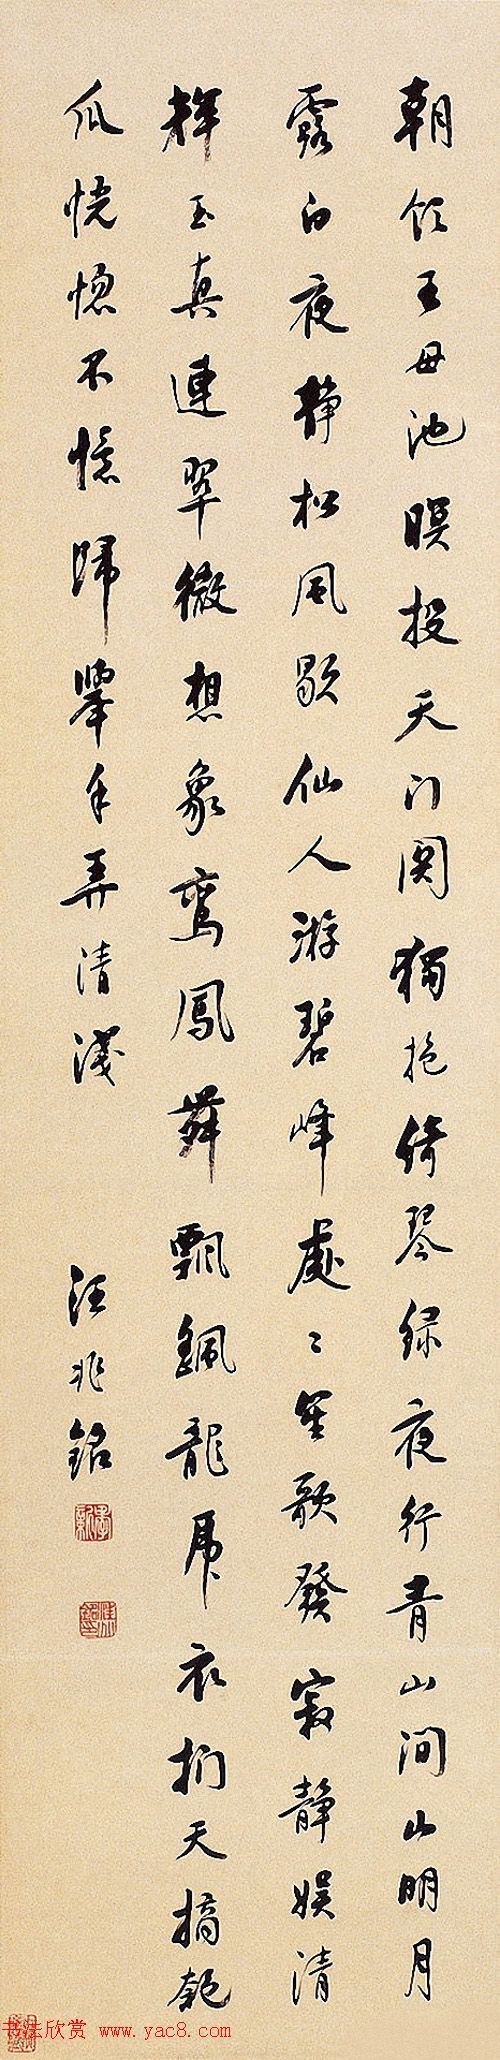 朝飲王母池暝投天门関獨抱綺琴緑夜行青山间山明月
露白夜静松風歇仙人游碧峰處〻笙歌發寂静娱清
輝玉真連翠微想象鸞鳳舞飄颻龍虎衣捫天摘匏
瓜恍惚不憶歸舉手弄清淺
汪兆銘
季新
汪兆銘印
书法欣赏 www.yac8.com